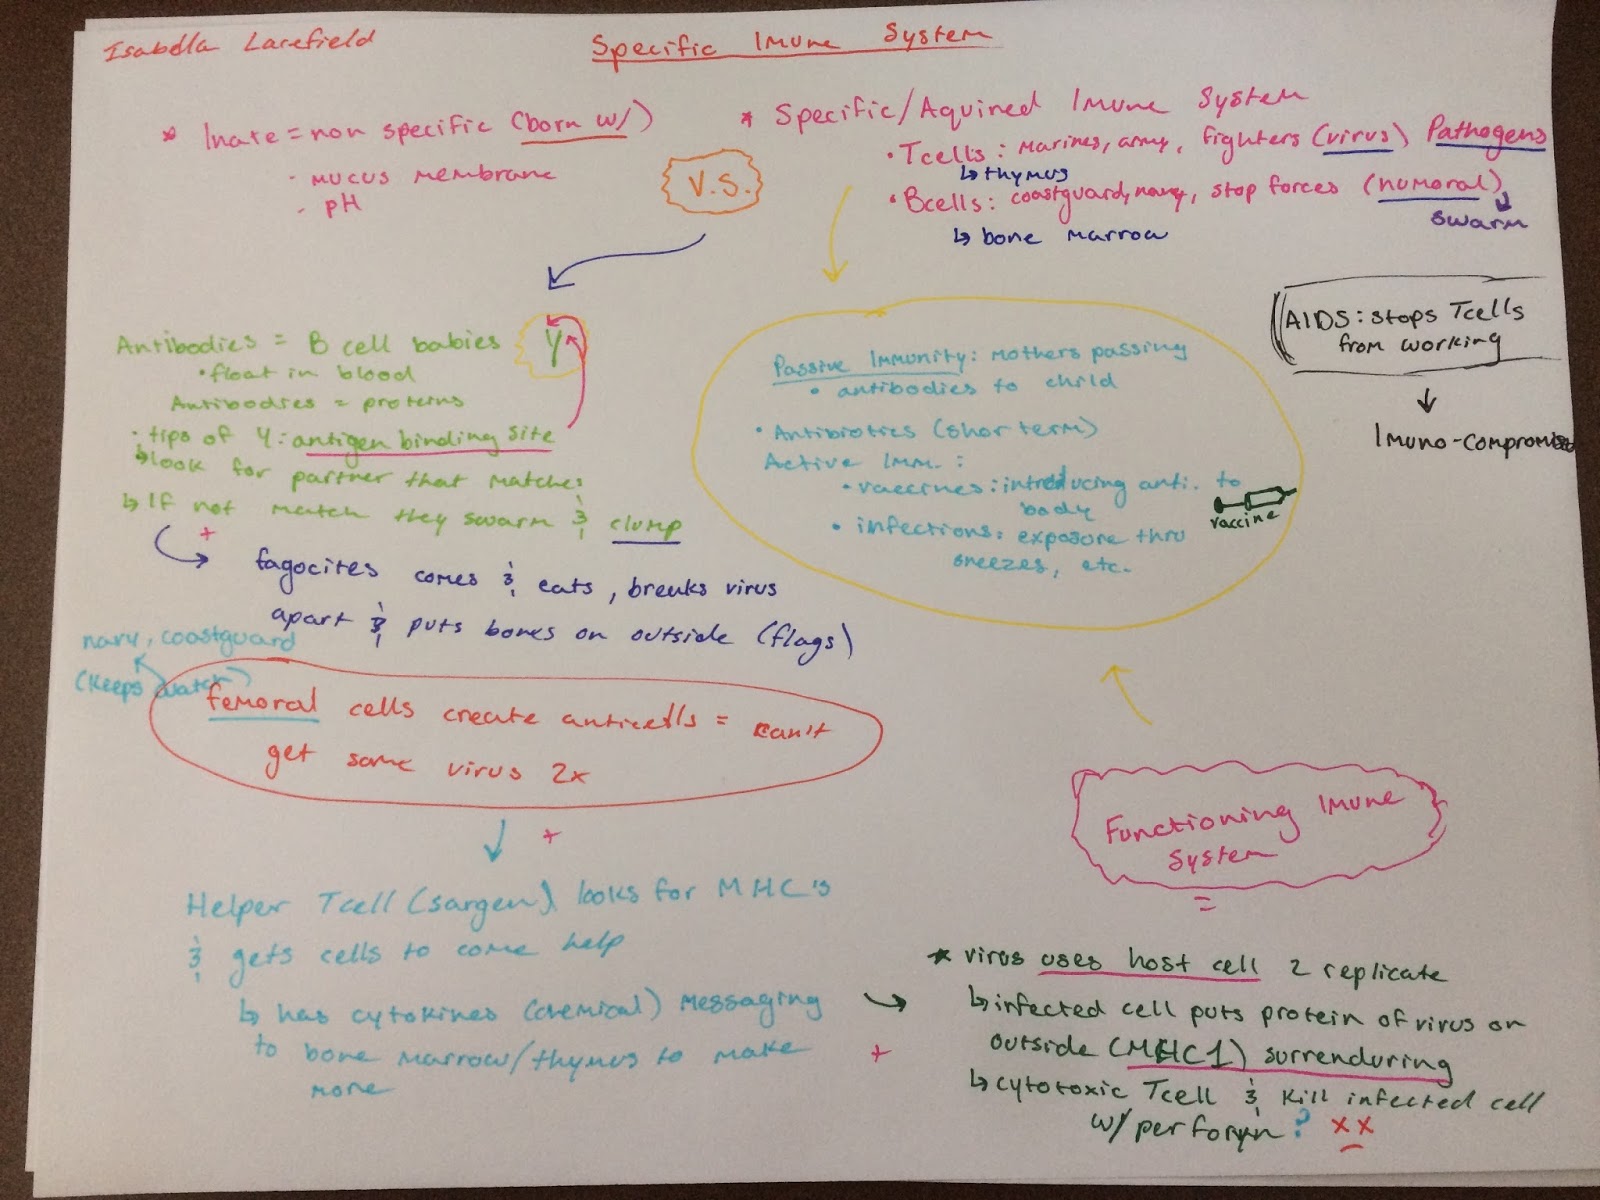 Isabella Larefield
Specific Imune System
* Inate = non specific (born w/)
- mucus membrane
- pH
V.S.
* Specific/Aquired Imune System
• Tcells : marines, army, fighters (virus) Pathogens
↳ thymus
• Bcells : coastguard, navy, stop forces (numoral)
↳ bone marrow
swarm
AIDS : stops Tcells
from working
Imuno-compromised
Antibodies = B cell babies Y
• float in blood
Antibodies = proteins
• tips of Y : antigen binding site
↳ look for partner that matches
↳ If not match they swarm & clump
+
fagocites comes & eats, breaks virus
apart & puts bones on outside (flags)
Passive Immunity : mothers passing
• antibodies to child
• Antibiotics (short term)
Active Imm. :
• vaccines : introducing anti. to
body
vaccine
• infections : exposure thru
sneezes, etc.
navy, coastguard
(keeps watch)
femoral cells create anticells = can't
get same virus 2x
+
Helper Tcell (sargen) looks for MHC's
& gets cells to come help
↳ has cytokines (chemical) messaging
to bone marrow/thymus to make
more
+
Functioning Imune
System
=
* virus uses host cell 2 replicate
↳ infected cell puts protein of virus on
outside (MHC1) surrenduring
↳ cytotoxic Tcell & kill infected cell
w/ perforyn ? x x